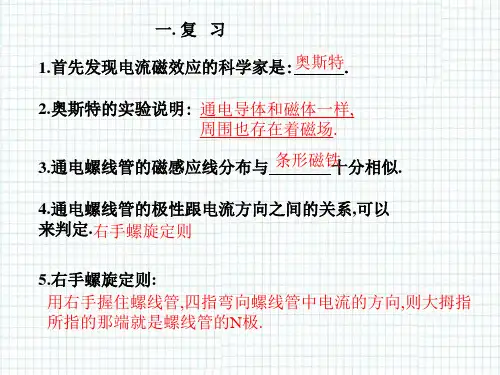 一.复 习
1.首先发现电流磁效应的科学家是:奥斯特.
2.奥斯特的实验说明: 通电导体和磁体一样,
周围也存在着磁场.
3.通电螺线管的磁感应线分布与条形磁铁十分相似.
4.通电螺线管的极性跟电流方向之间的关系,可以
来判定.右手螺旋定则
5.右手螺旋定则:
用右手握住螺线管,四指弯向螺线管中电流的方向,则大拇指
所指的那端就是螺线管的N极.